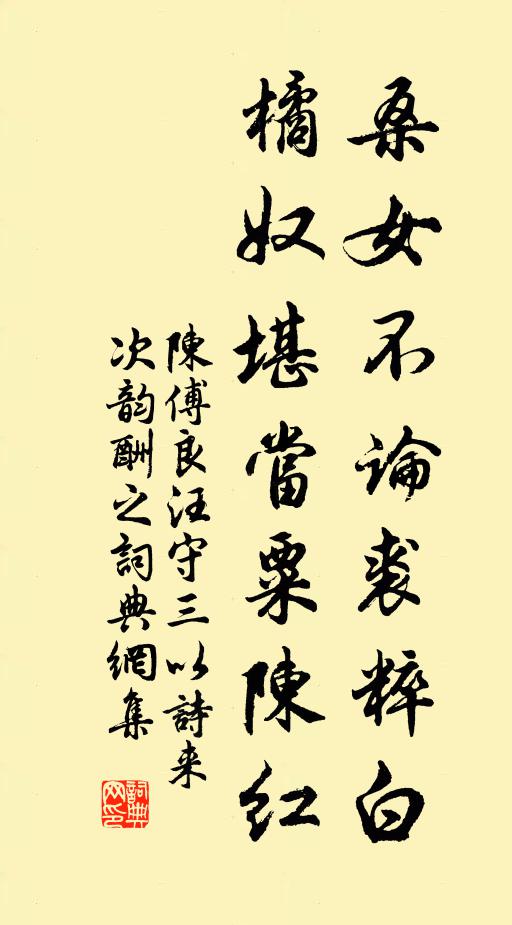 桑女不論裘粹白
橘奴堪當粟陳紅
陳傅良汪守三以詩来
次韵酬之詞典網集
詞典
网印